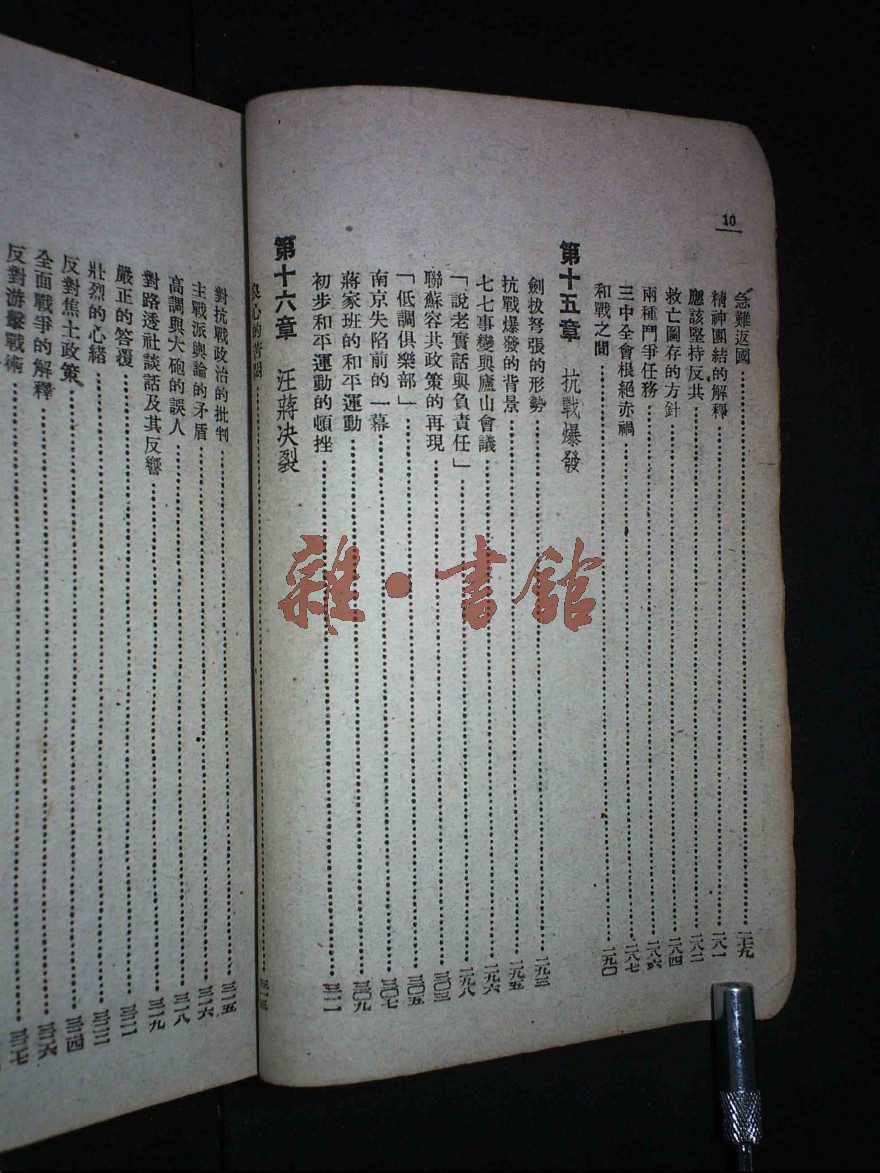 10
急難返國……二七九
精神團結的解釋……二八一
應該堅持反共……二八二
救亡圖存的方針……二八四
兩種鬥爭任務……二八六
三中全會根絕赤禍……二八七
和戰之間……二九〇
第十五章 抗戰爆發
劍拔弩張的形勢……二九三
抗戰爆發的背景……二九五
七七事變與廬山會議……二九六
「說老實話與負責任」……二九八
聯蘇容共政策的再現……三〇三
「低調俱樂部」……三〇五
南京失陷前的一幕……三〇七
蔣家班的和平運動……三〇九
初步和平運動的頓挫……三一一
第十六章 汪蔣決裂
良心的苦悶……三一三
對抗戰政治的批判……三一五
主戰派輿論的矛盾……三一六
高調與大砲的誤人……三一八
對路透社談話及其反響……三一九
嚴正的答覆……三二一
壯烈的心緒……三二三
反對焦土政策……三二四
全面戰爭的解釋……三二六
反對游擊戰術……三二七
雜·書館